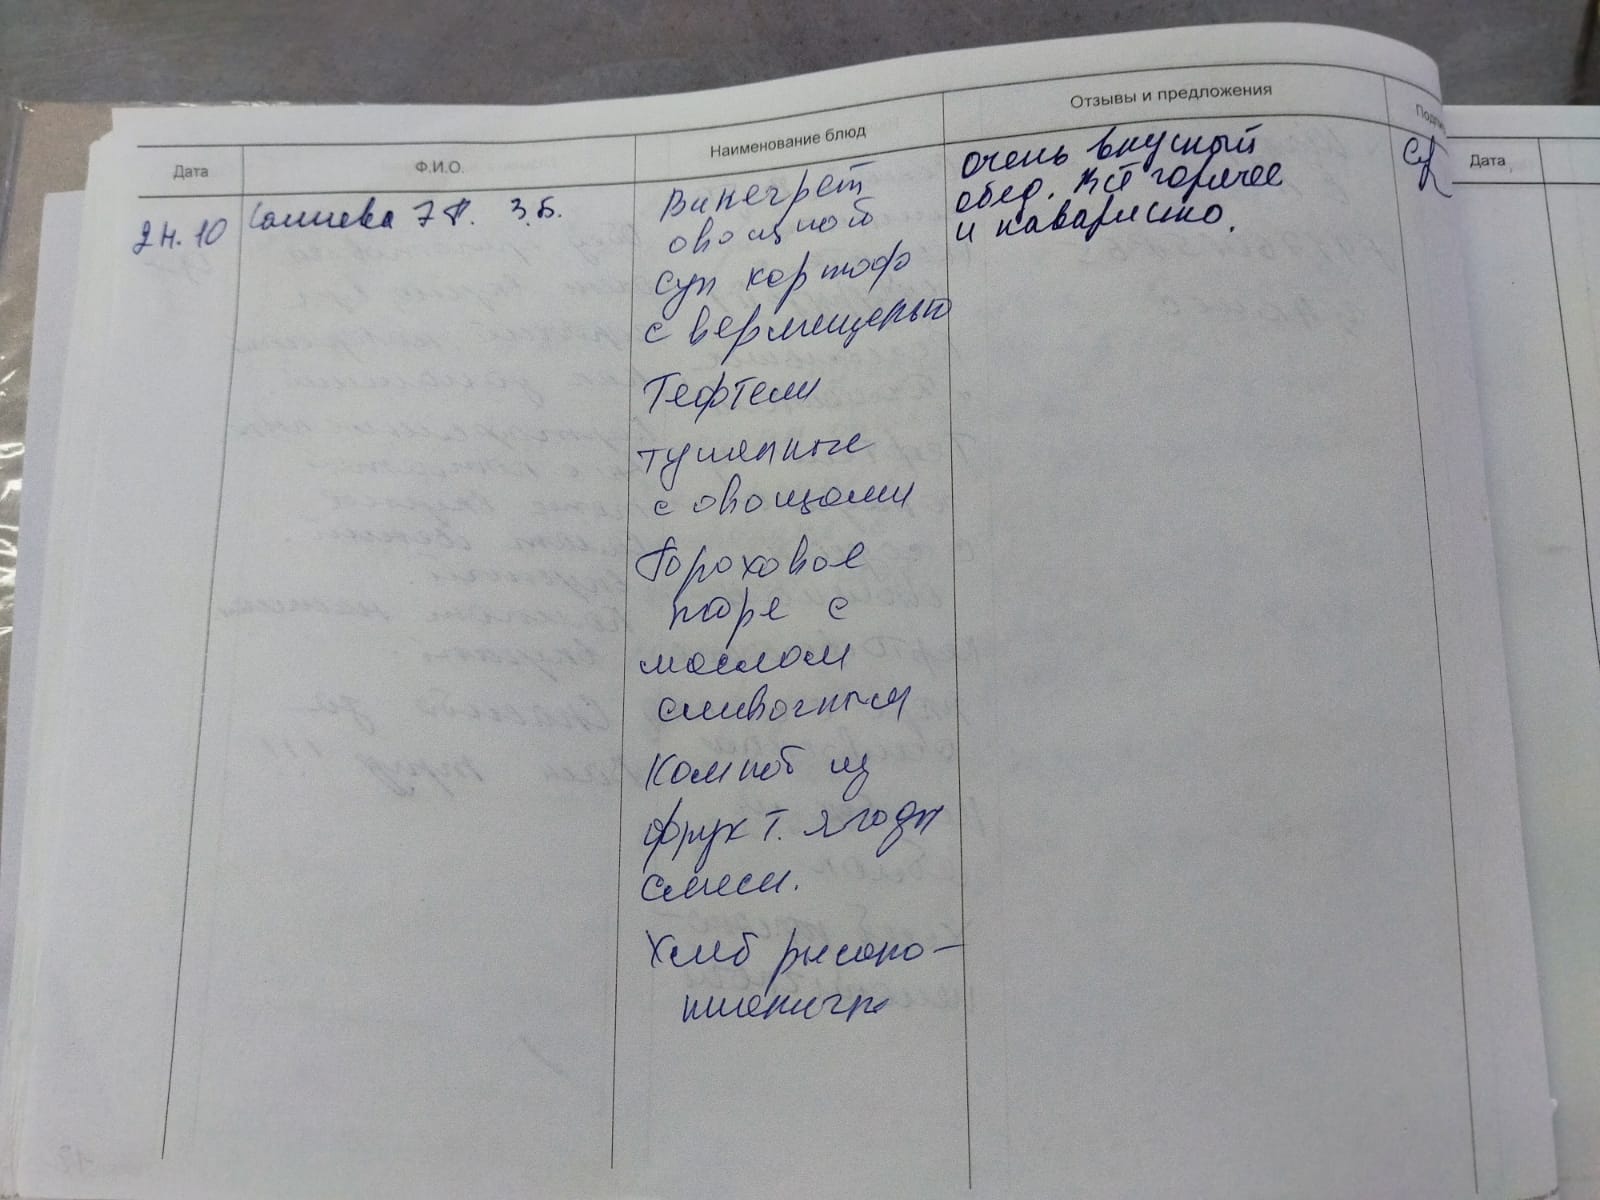 Дата Ф.И.О. Наименование блюд Отзывы и предложения
Дата
24.10
З.Б.
Винегрет
овощной
суп картоф
с вермишелью
Тефтели
тушеные
с овощами
Гороховое
пюре с
маслом
сливочным
Компот из
фрукт. ягодн
смеси.
Хлеб ржано-
пшеничн
очень вкусный
обед. Всё горячее
и наваристо.